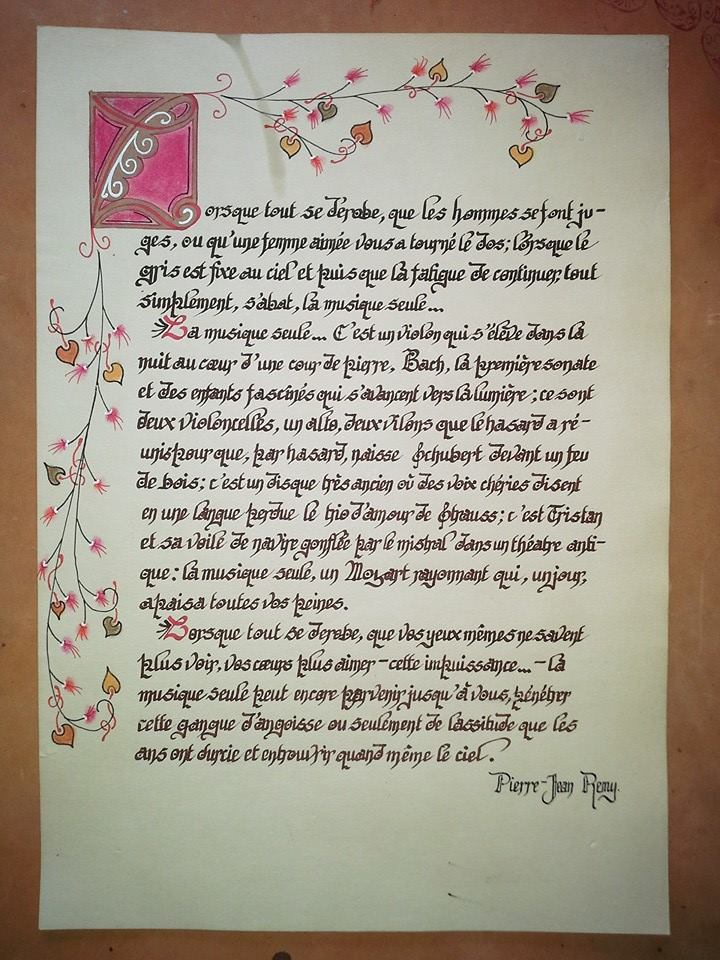 Lorsque tout se dérobe, que les hommes se font ju-
ges, ou qu'une femme aimée vous a tourné le dos; lorsque le
gris est fixe au ciel et puis que la fatigue de continuer, tout
simplement, s'abat, la musique seule...
La musique seule... C'est un violon qui s'élève dans la
nuit au cœur d'une cour de pierre, Bach, la première sonate
et des enfants fascinés qui s'avancent vers la lumière; ce sont
deux violoncelles, un alto, deux vilons que le hasard a ré-
unis pour que, par hasard, naisse Schubert devant un feu
de bois; c'est un disque très ancien où des voix chéries disent
en une langue perdue le trio d'amour de Strauss; c'est Tristan
et sa voile de navire gonflée par le mistral dans un théatre anti-
que: la musique seule, un Mozart rayonnant qui, un jour,
apaisa toutes vos peines.
Lorsque tout se derobe, que vos yeux mêmes ne savent
plus voir, vos cœurs plus aimer - cette impuissance... - la
musique seule peut encore parvenir jusqu'à vous, pénétrer
cette gangue d'angoisse ou seulement de lassitude que les
ans ont durcie et entrouvrir quand même le ciel.
Pierre-Jean Remy.